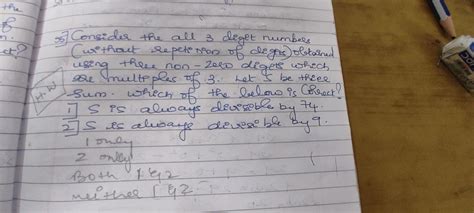 the
of
ct?
H.W
Consider the all 3 digit numbers
(without repetition of digits) obtained
using three non-zero digits which
are multiples of 3. Let S be their
sum. which of the below is correct?
1] S is always divisible by 74.
2] S is always divisible by 9.
1 only
2 only
Both 1 & 2
neither 1 & 2